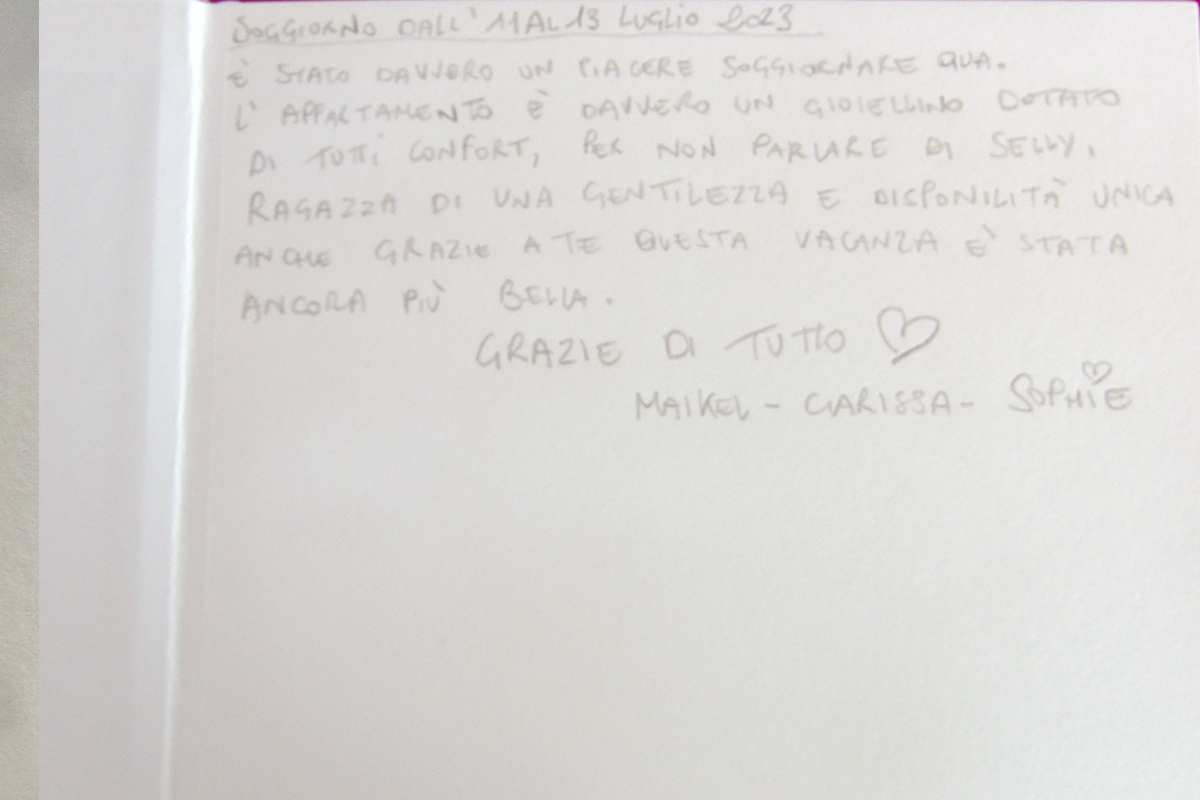 SOGGIORNO DALL' 11 AL 13 LUGLIO 2023
È STATO DAVVERO UN PIACERE SOGGIORNARE QUA.
L' APPARTAMENTO È DAVVERO UN GIOIELLINO DOTATO
DI TUTTI CONFORT, PER NON PARLARE DI SELLY,
RAGAZZA DI UNA GENTILEZZA E DISPONILITÀ UNICA
ANCHE GRAZIE A TE QUESTA VACANZA E' STATA
ANCORA PIÙ BELLA.
GRAZIE DI TUTTO ♡
MAIKEL - CLARISSA - SOPHIE